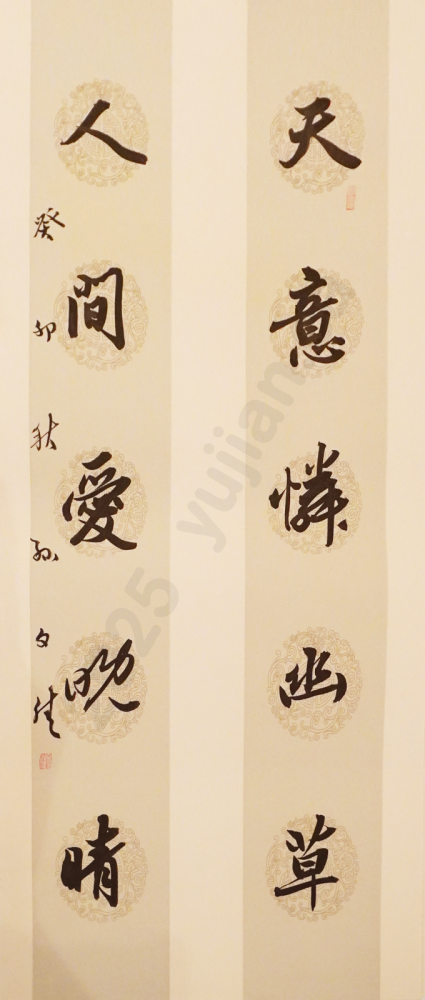 天意憐幽草
人間愛晚晴
癸卯秋孫文
25 yujian